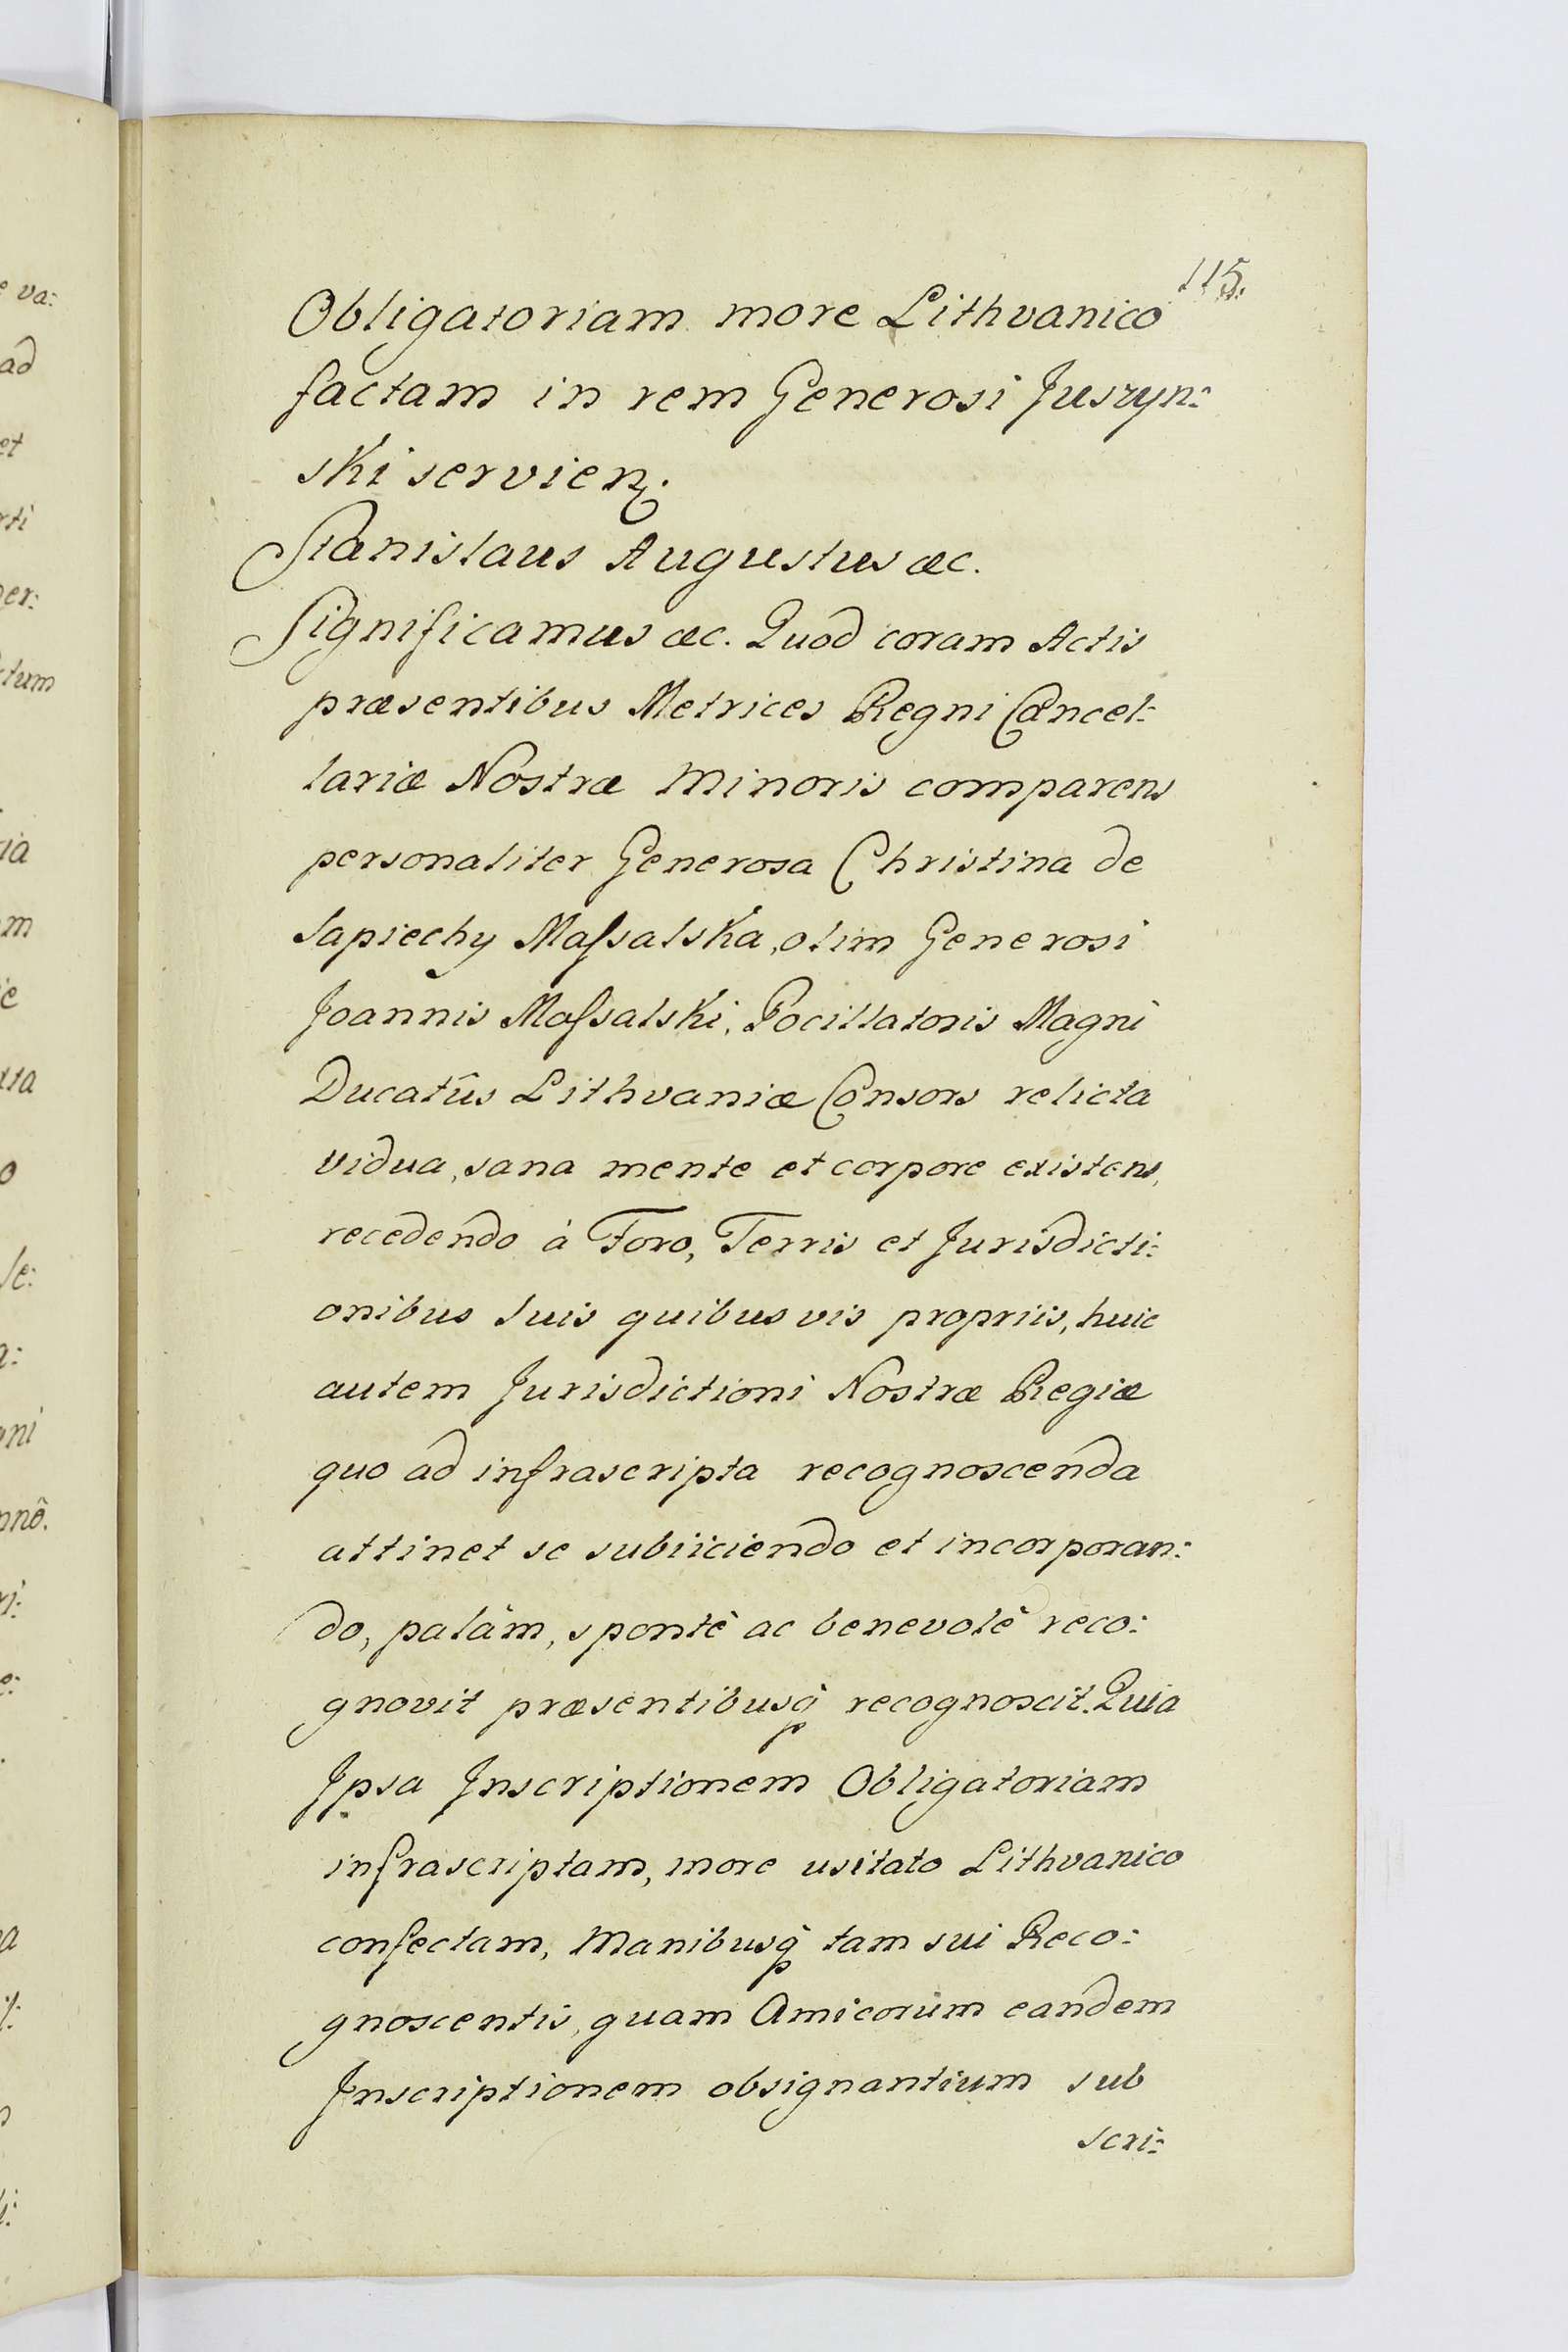 115.
Obligatoriam more Lithvanico
factam in rem Generosi Juszyn:
ski servien.
Stanislaus Augustus &c.
Significamus &c. Quod coram Actis
præsentibus Metrices Regni Cancel:
lariæ Nostræ Minoris comparens
personaliter Generosa Christina de
Sapiechy Massalska, olim Generosi
Joannis Massalski, Pocillatoris Magni
Ducatûs Lithvaniæ Consors relicta
vidua, sana mente et corpore existens,
recedendo à Foro, Terris et Jurisdicti:
onibus suis quibus vis propriis, huic
autem Jurisdictioni Nostræ Regiæ
quo ad infrascripta recognoscenda
attinet se subiiciendo et incorporan:
do, palàm, spontè ac benevolè reco:
gnovit præsentibusq̃ recognoscit. Quia
Ipsa Inscriptionem Obligatoriam
infrascriptam, more usitato Lithvanico
confectam, Manibusq̃ tam sui Reco:
gnoscentis, quam Amicorum eandem
Inscriptionem obsignantium sub
scri: